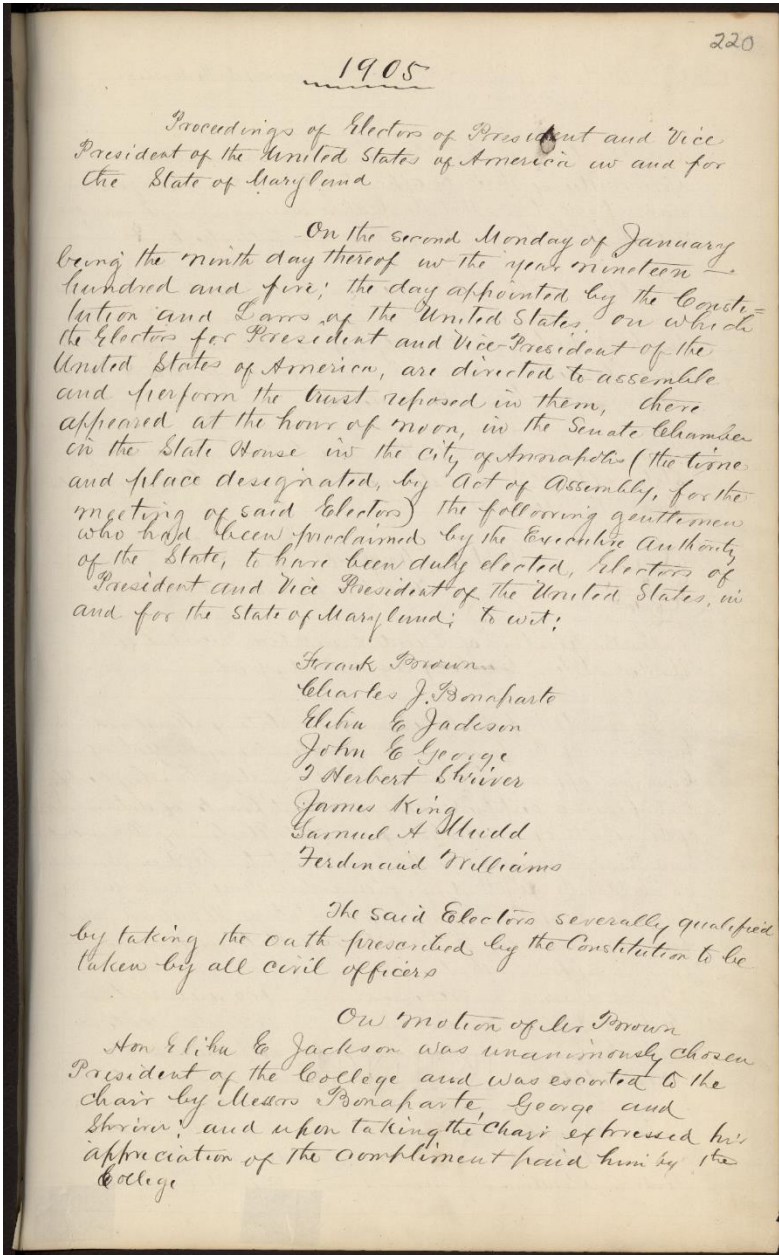 220
1905
Proceedings of Electors of President and Vice
President of the United States of America in and for
the State of Maryland
On the second Monday of January
being the ninth day thereof in the year nineteen —
hundred and five; the day appointed by the Consti=
tution and Laws of the United States, on which
the Electors for President and Vice-President of the
United States of America, are directed to assemble
and perform the trust reposed in them, there
appeared at the hour of noon, in the Senate Chamber
in the State House in the city of Annapolis (the time
and place designated, by Act of Assembly, for the
meeting of said Electors) the following gentlemen
who had been proclaimed by the Executive Authority
of the State, to have been duly elected, Electors of
President and Vice President of the United States, in
and for the State of Maryland; to wit:
Frank Brown
Charles J. Bonaparte
Elihu E Jackson
John E George
T Herbert Shriver
James King
Samuel A Mudd
Ferdinand Williams
The said Electors severally qualified
by taking the oath prescribed by the Constitution to be
taken by all civil officers
On motion of Mr Brown
Hon Elihu E Jackson was unanimously chosen
President of the College and was escorted to the
chair by Messrs Bonaparte, George and
Shriver; and upon taking the Chair expressed his
appreciation of the compliment paid him by the
College